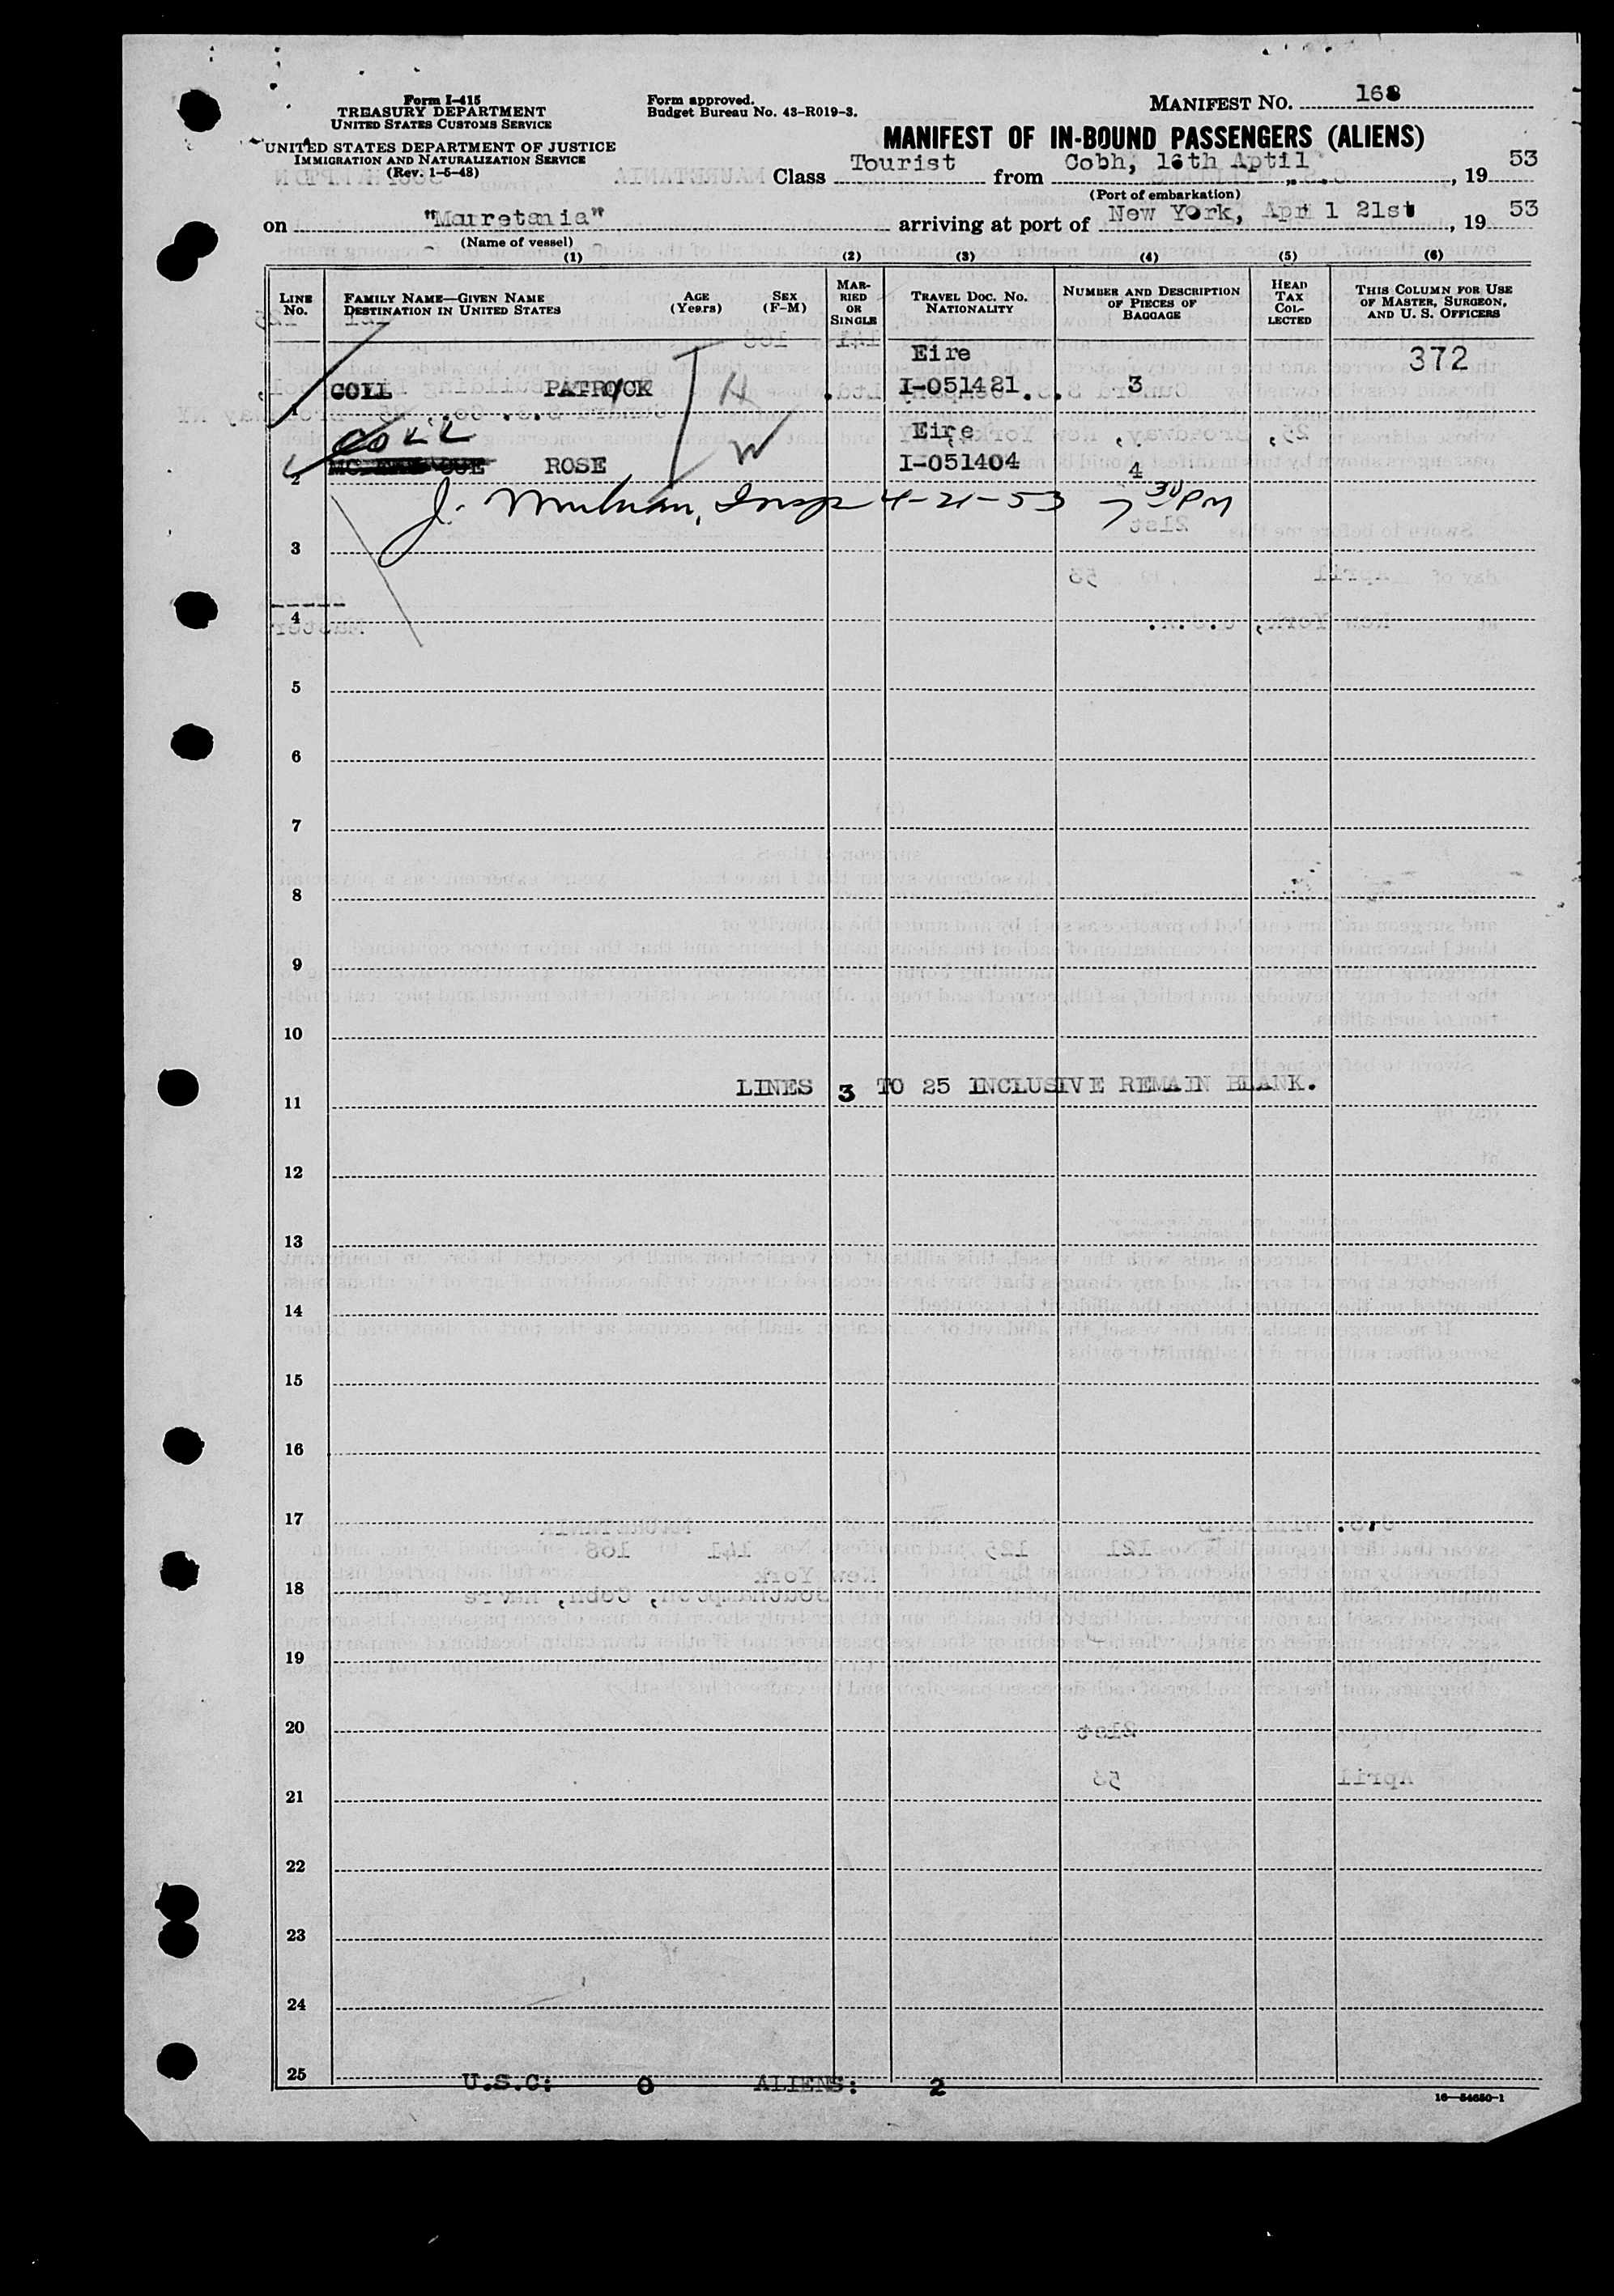 Form I-415
TREASURY DEPARTMENT
UNITED STATES CUSTOMS SERVICE
UNITED STATES DEPARTMENT OF JUSTICE
IMMIGRATION AND NATURALIZATION SERVICE
(Rev. 1-5-48)
Form approved.
Budget Bureau No. 43-R019-3.
MANIFEST NO. 168
MANIFEST OF IN-BOUND PASSENGERS (ALIENS)
Class Tourist from Cobh, 16th Aptil, 19 53
(Port of embarkation)
on "Mauretania" arriving at port of New York, Apr 1 21st, 19 53
(Name of vessel)
(1) (2) (3) (4) (5) (6)
LINE No.
FAMILY NAME—GIVEN NAME
DESTINATION IN UNITED STATES
AGE (Years)
SEX (F-M)
MAR-RIED OR SINGLE
TRAVEL DOC. NO.
NATIONALITY
NUMBER AND DESCRIPTION OF PIECES OF BAGGAGE
HEAD TAX COL-LECTED
THIS COLUMN FOR USE OF MASTER, SURGEON, AND U. S. OFFICERS
Eire 372
1 COLL PATROCK H I-051421 3
COLL Eire
2 ROSE W I-051404 4
J. Insp 4-21-53 7 30 PM
3
4
5
6
7
8
9
10
LINES 3 TO 25 INCLUSIVE REMAIN BLANK.
11
12
13
14
15
16
17
18
19
20
21
22
23
24
25
U.S.C: 0 ALIENS: 2
16—54650-1